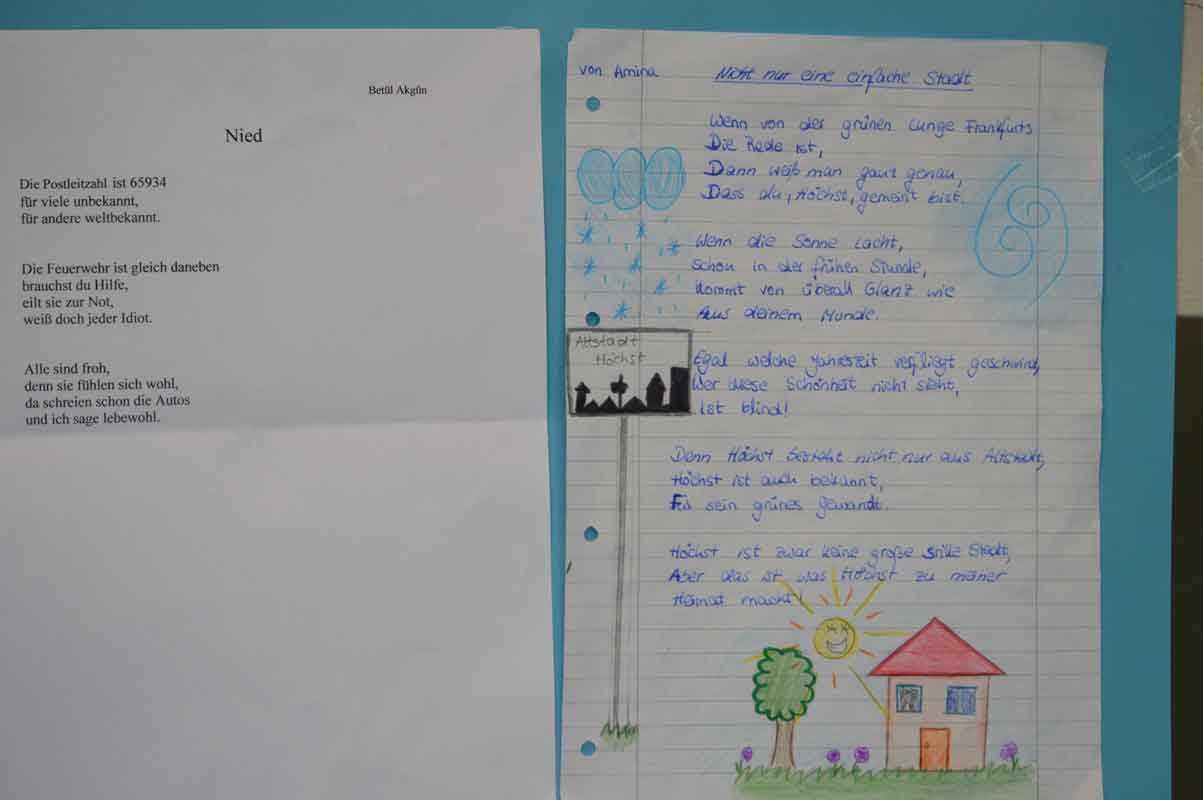 Betül Akgün
Nied
Die Postleitzahl ist 65934
für viele unbekannt,
für andere weltbekannt.
Die Feuerwehr ist gleich daneben
brauchst du Hilfe,
eilt sie zur Not,
weiß doch jeder Idiot.
Alle sind froh,
denn sie fühlen sich wohl,
da schreien schon die Autos
und ich sage lebewohl.
von Amina
Nicht nur eine einfache Stadt
Wenn von der grünen Lunge Frankfurts
Die Rede ist,
Dann weiß man ganz genau,
Dass du, Höchst, gemeint bist.
Wenn die Sonne lacht,
schon in der frühen Stunde,
kommt von überall Glanz wie
Aus deinem Munde.
Egal welche Jahreszeit verfliegt geschwind,
Wer diese Schönheit nicht sieht,
Ist blind!
Altstadt
Höchst
Denn Höchst besteht nicht nur aus Altstadt,
Höchst ist auch bekannt,
Für sein grünes Gewandt.
Höchst ist zwar keine große Stadt,
Aber das ist was Höchst zu meiner
Heimat macht!